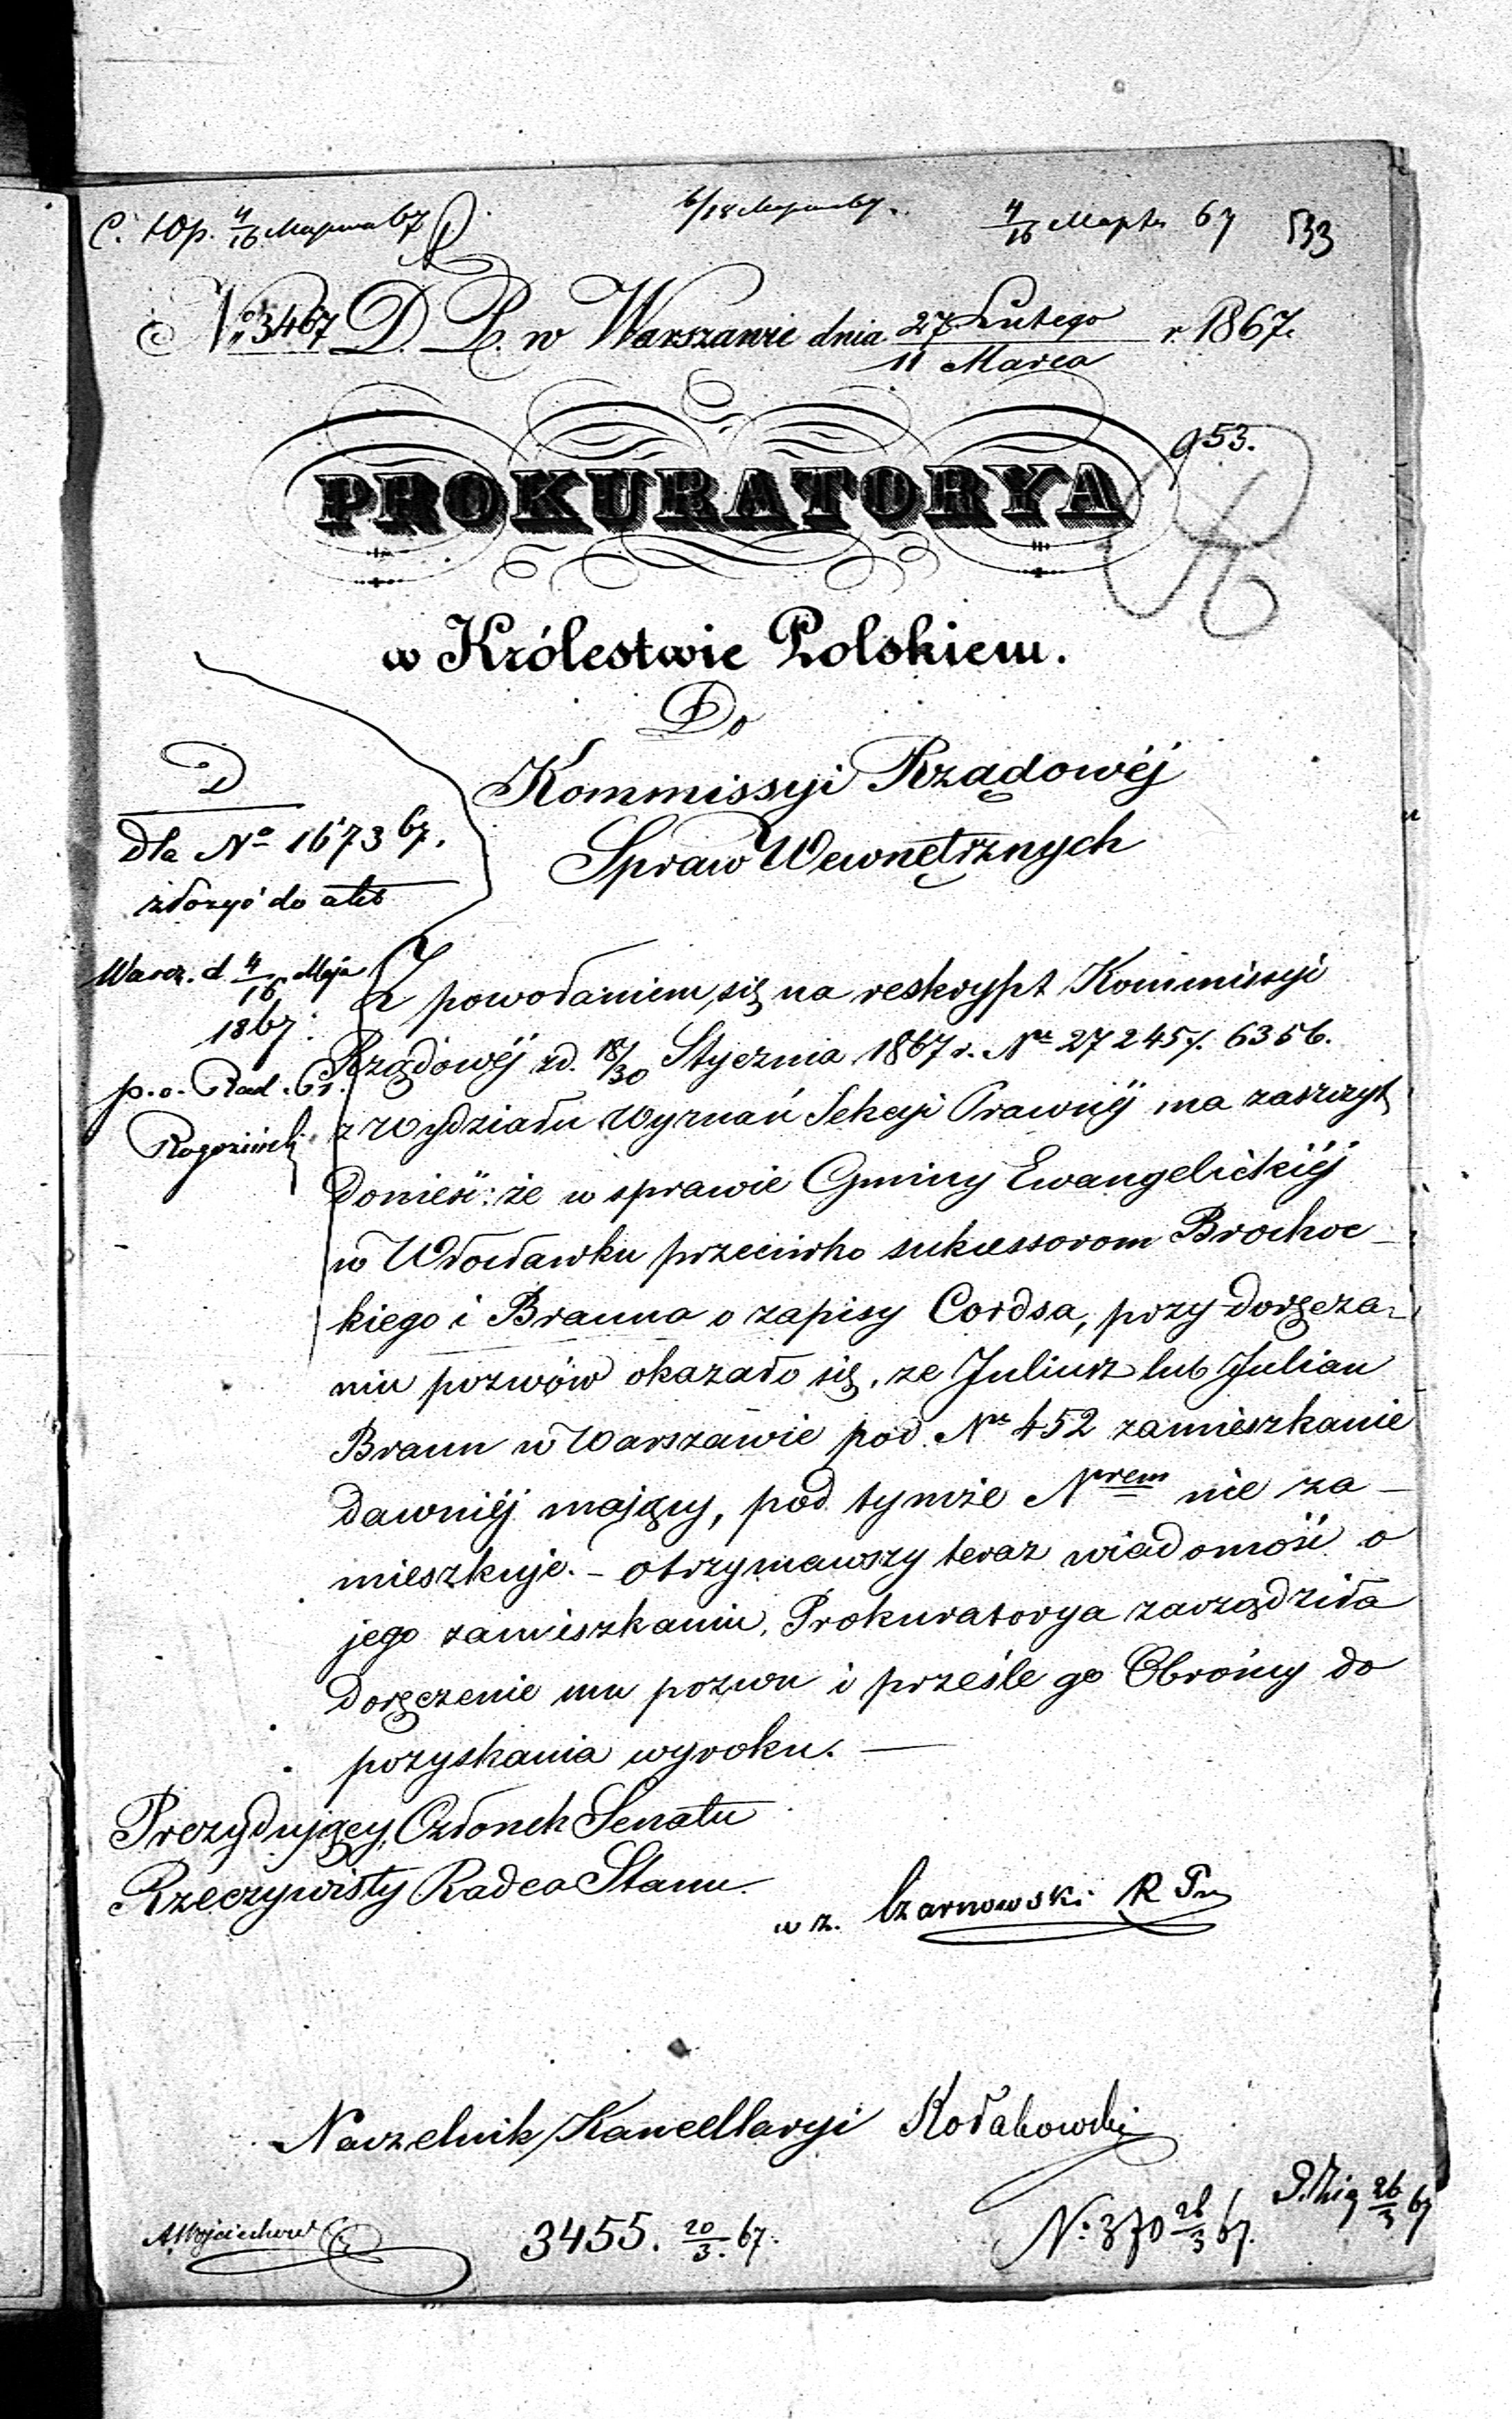 С. Юр. 4/16 Марта 67
6/18 Марта 67.
4/16 Марта 67
533
№ 3467 D. P. w Warszawie dnia 27 Lutego / 11 Marca r. 1867.
953.
PROKURATORYA
w Królestwie Polskiem.
Do
Kommissyi Rządowéj
Spraw Wewnętrznych
D
dla No 1673 67.
złożyć do akt
Warsz. d. 4/16 Maja
1867.
p.o. Rad. Pr.
Z powołaniem się na reskrypt Kommissyi
Rządowéj z d. 18/30 Stycznia 1867 r. Nr 27245/. 6356.
z Wydziału Wyznań Sekcyi Prawnéj ma zaszczyt
donieść: że w sprawie Gminy Ewangelickiéj
w Włocławku przeciwko sukcessorom Brochoc-
kiego i Brauna o zapisy Cordsa, przy doręcza-
niu pozwów okazało się, że Juliusz lub Julian
Braun w Warszawie pod Nr 452 zamieszkanie
dawniéj mający, pod tymże Nrem nie za-
mieszkuje. – Otrzymawszy teraz wiadomość o
jego zamieszkaniu, Prokuratorya zarządziła
doręczenie mu pozwu i prześle go Obrońcy do
pozyskania wyroku. —
Prezydujący, Członek Senatu
Rzeczywisty Radca Stanu
w z. Czarnowski R Pr
Naczelnik Kancellaryi
3455. 20/3. 67.
N. 370 26/3 67.
26/3 67